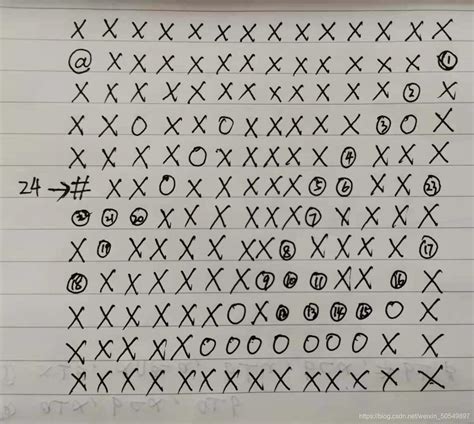 X X X X X X X X X X X X X X
@ X X X X X X X X X X X X ①
X X X X X X X X X X X X ② X
X X O X X O X X X X X ③ O X
X X X X O X X X X X ④ X X X
24 → # X X O X X X X X ⑤ ⑥ X X ㉓
㉒ ㉑ ⑳ X X X X X X X ⑦ X X X X
X ⑲ X X X X X X ⑧ X X X X ⑰
⑱ X X X X X X X ⑨ ⑩ ⑪ X X ⑯ X
X X X X X X O X ⑫ ⑬ ⑭ ⑮ O X
X X X X X O O O O O O O X X
X X X X X X X X X X X X X X
https://blog.csdn.net/weixin_50549897